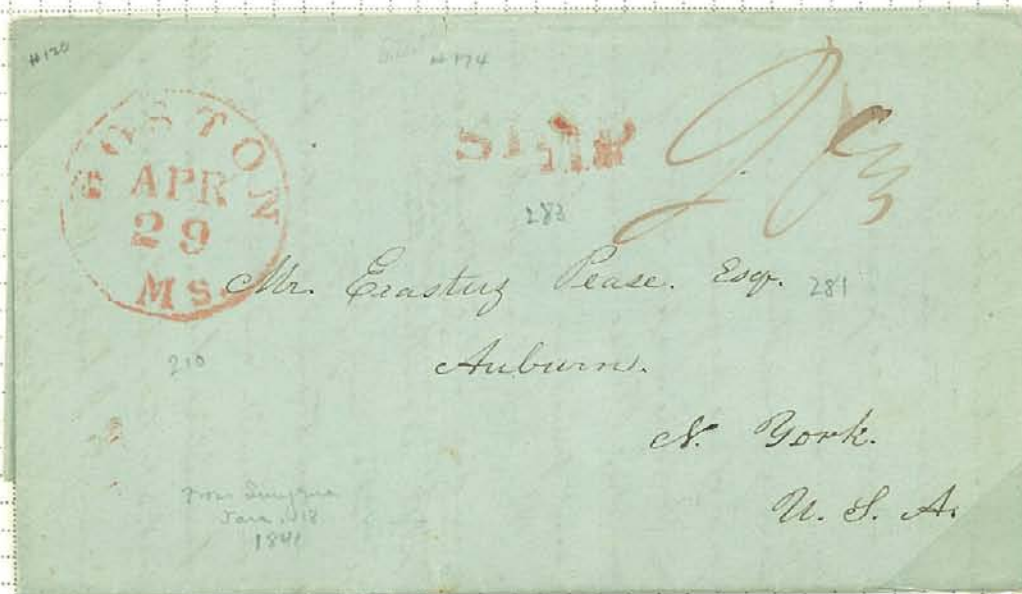 #120
#174
BOSTON
APR
29
Ms.
SHIP
283
Mr. Erastus Pease. Esqr.
281
Auburn.
210
N. York.
U. S. A.
From Smyrna
Jan. 18